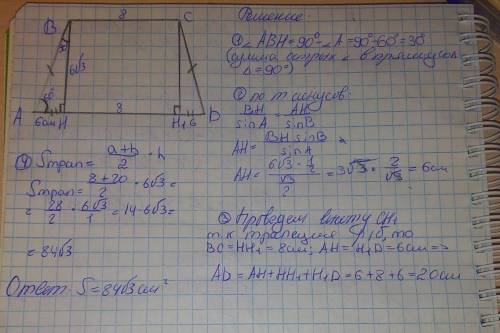 Решение:
8
B C
30°
6√3
60°
8
A 6см H H₁ 6 D
① ∠ABH = 90° - ∠A = 90° - 60° = 30°
(сумма острых ∠ в прямоугол.
Δ = 90°)
② по т. синусов:
BH/sinA = AH/sinB
AH = BH·sinB/sinA
AH = (6√3 · 1/2)/(√3/2) = 3√3 · 2/√3 = 6см
③ Проведем высоту CH₁
т.к трапеция р/б, то
BC = HH₁ = 8см; AH = H₁D = 6см =>
AD = AH + HH₁ + H₁D = 6 + 8 + 6 = 20см
④ Sтрап = (a+b)/2 · h
Sтрап = (8+20)/2 · 6√3 =
= 28/2 · 6√3/1 = 14 · 6√3 =
= 84√3
Ответ: S = 84√3 см²